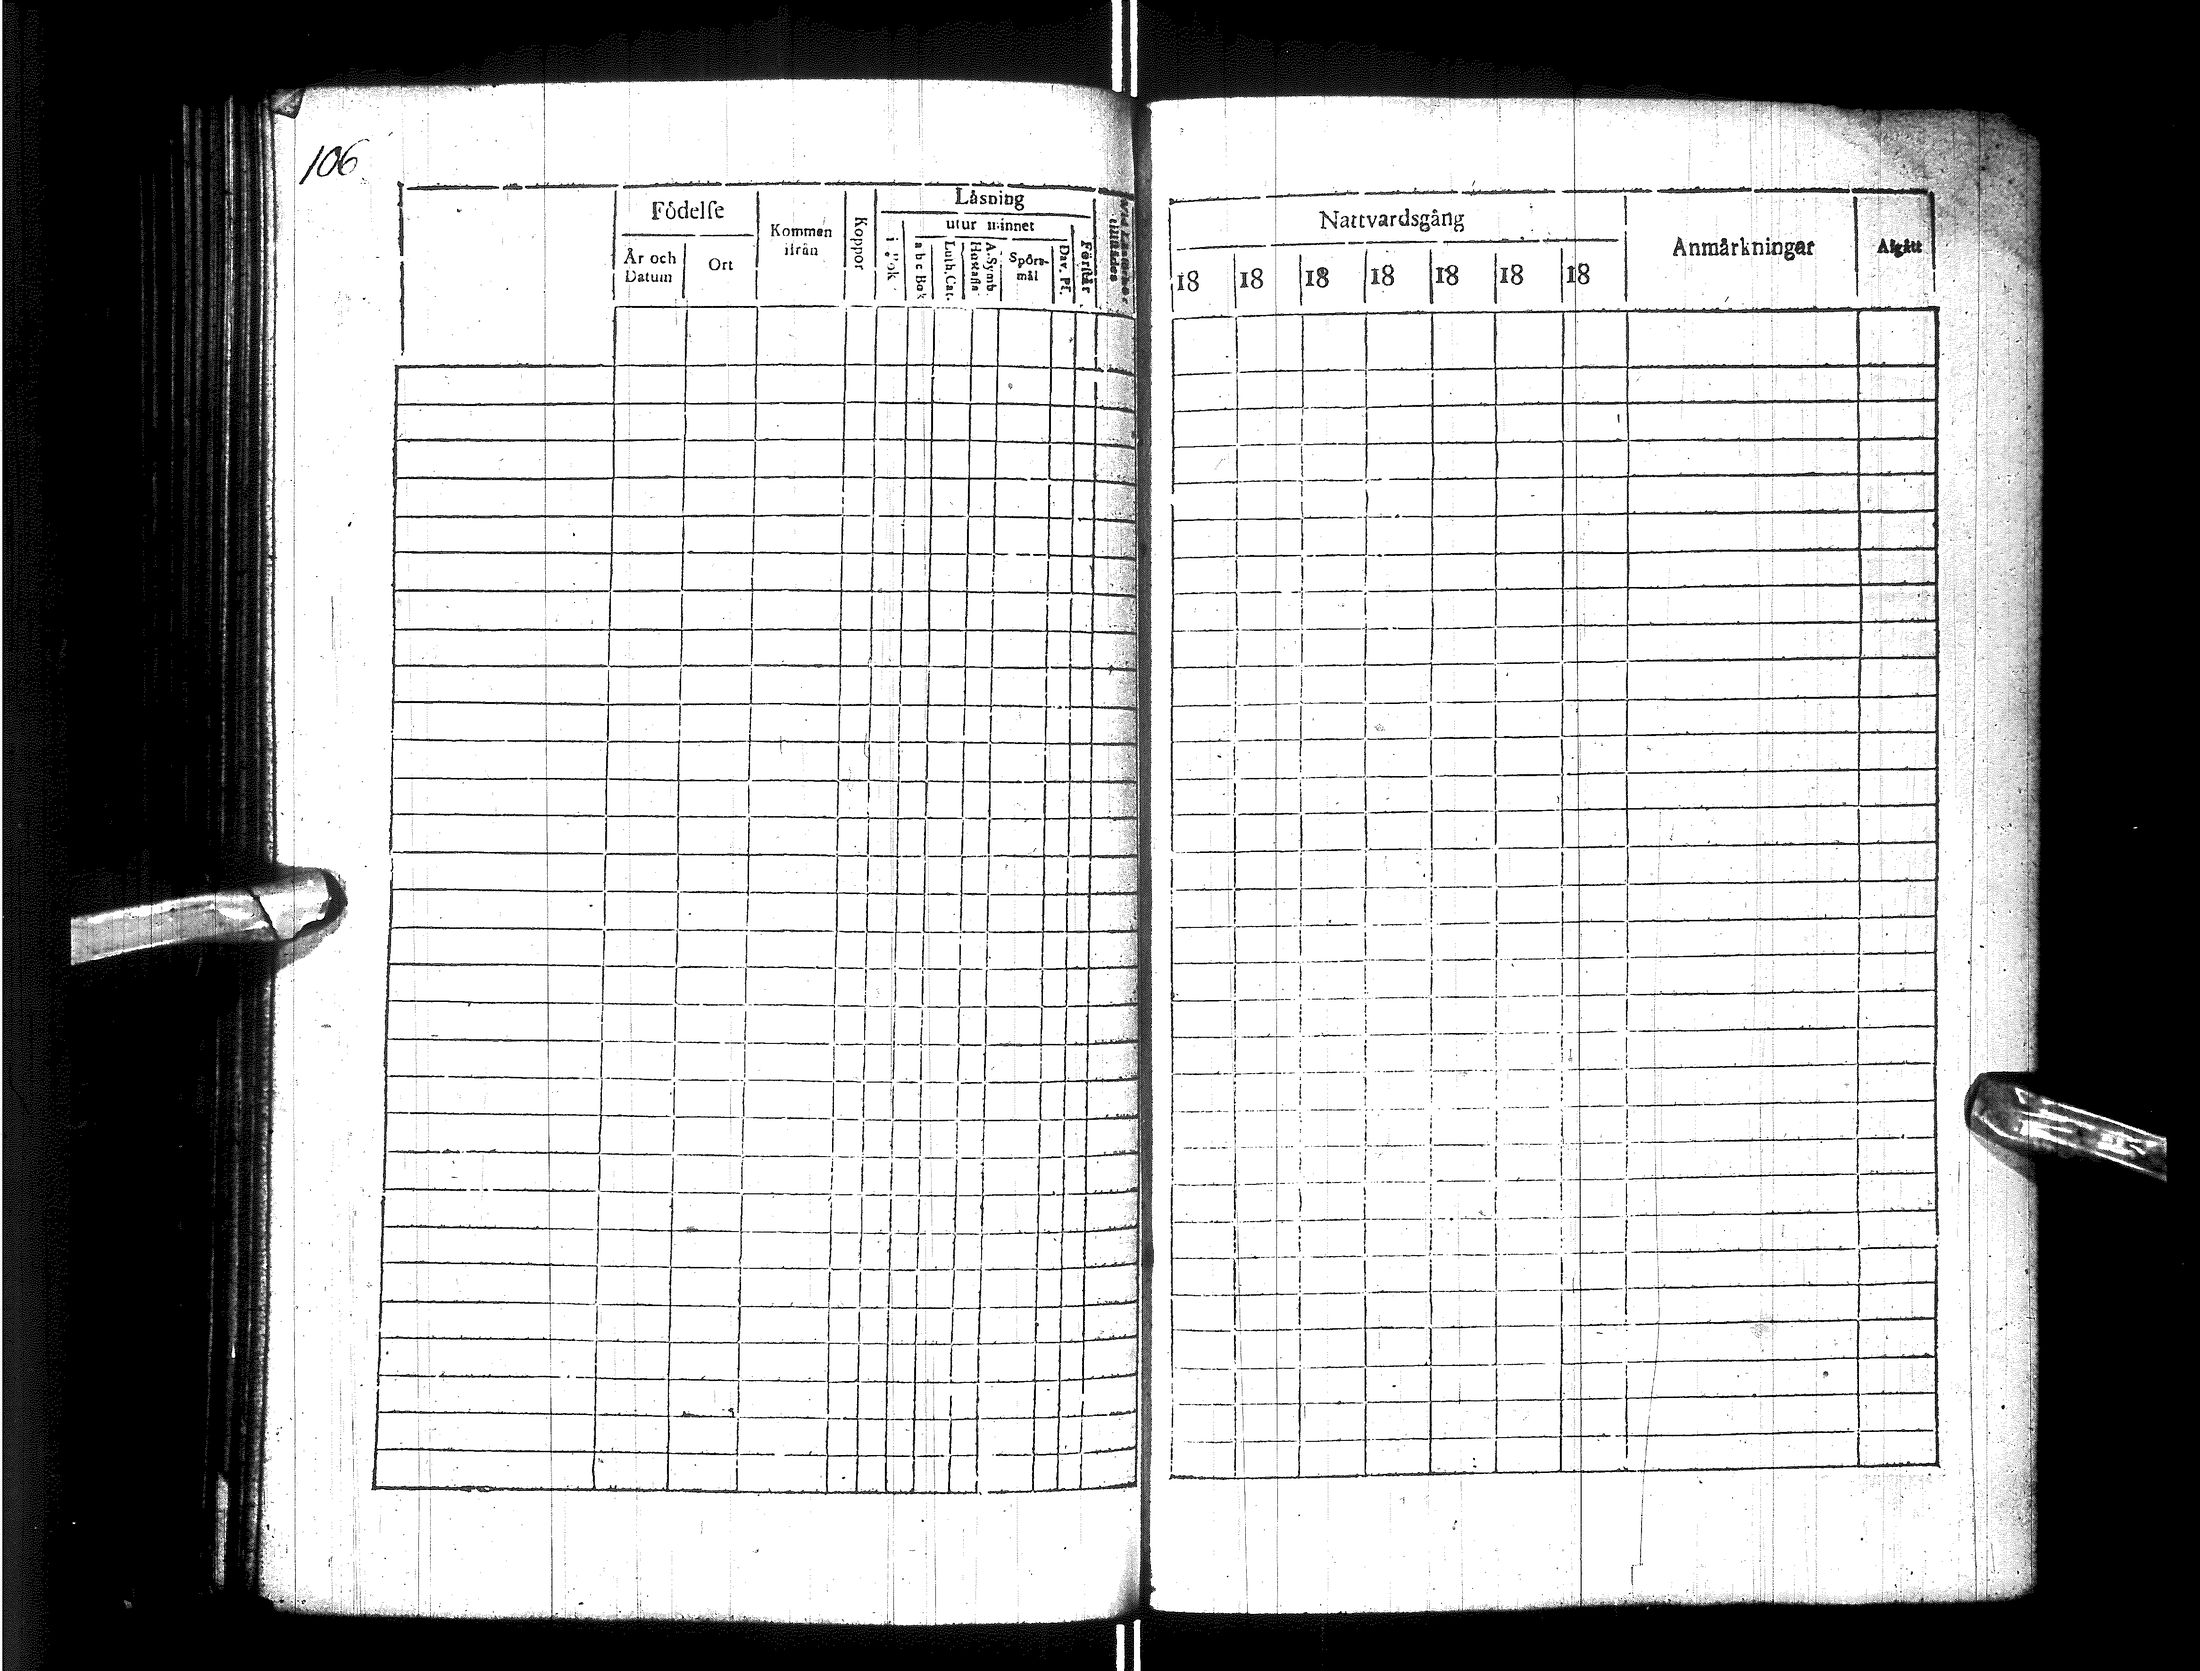 106
Födelse
År och Datum
Ort
Kommen ifrån
Koppor
Läsning
utur minnet
i Bok
a b c Bok
Luth. Cat.
A. Symb. Hustafla
Spörs-
mål
Dav. Ps.
Förstår
Nattvardsgång
18 18 18 18 18 18 18
Anmärkningar
Afgått